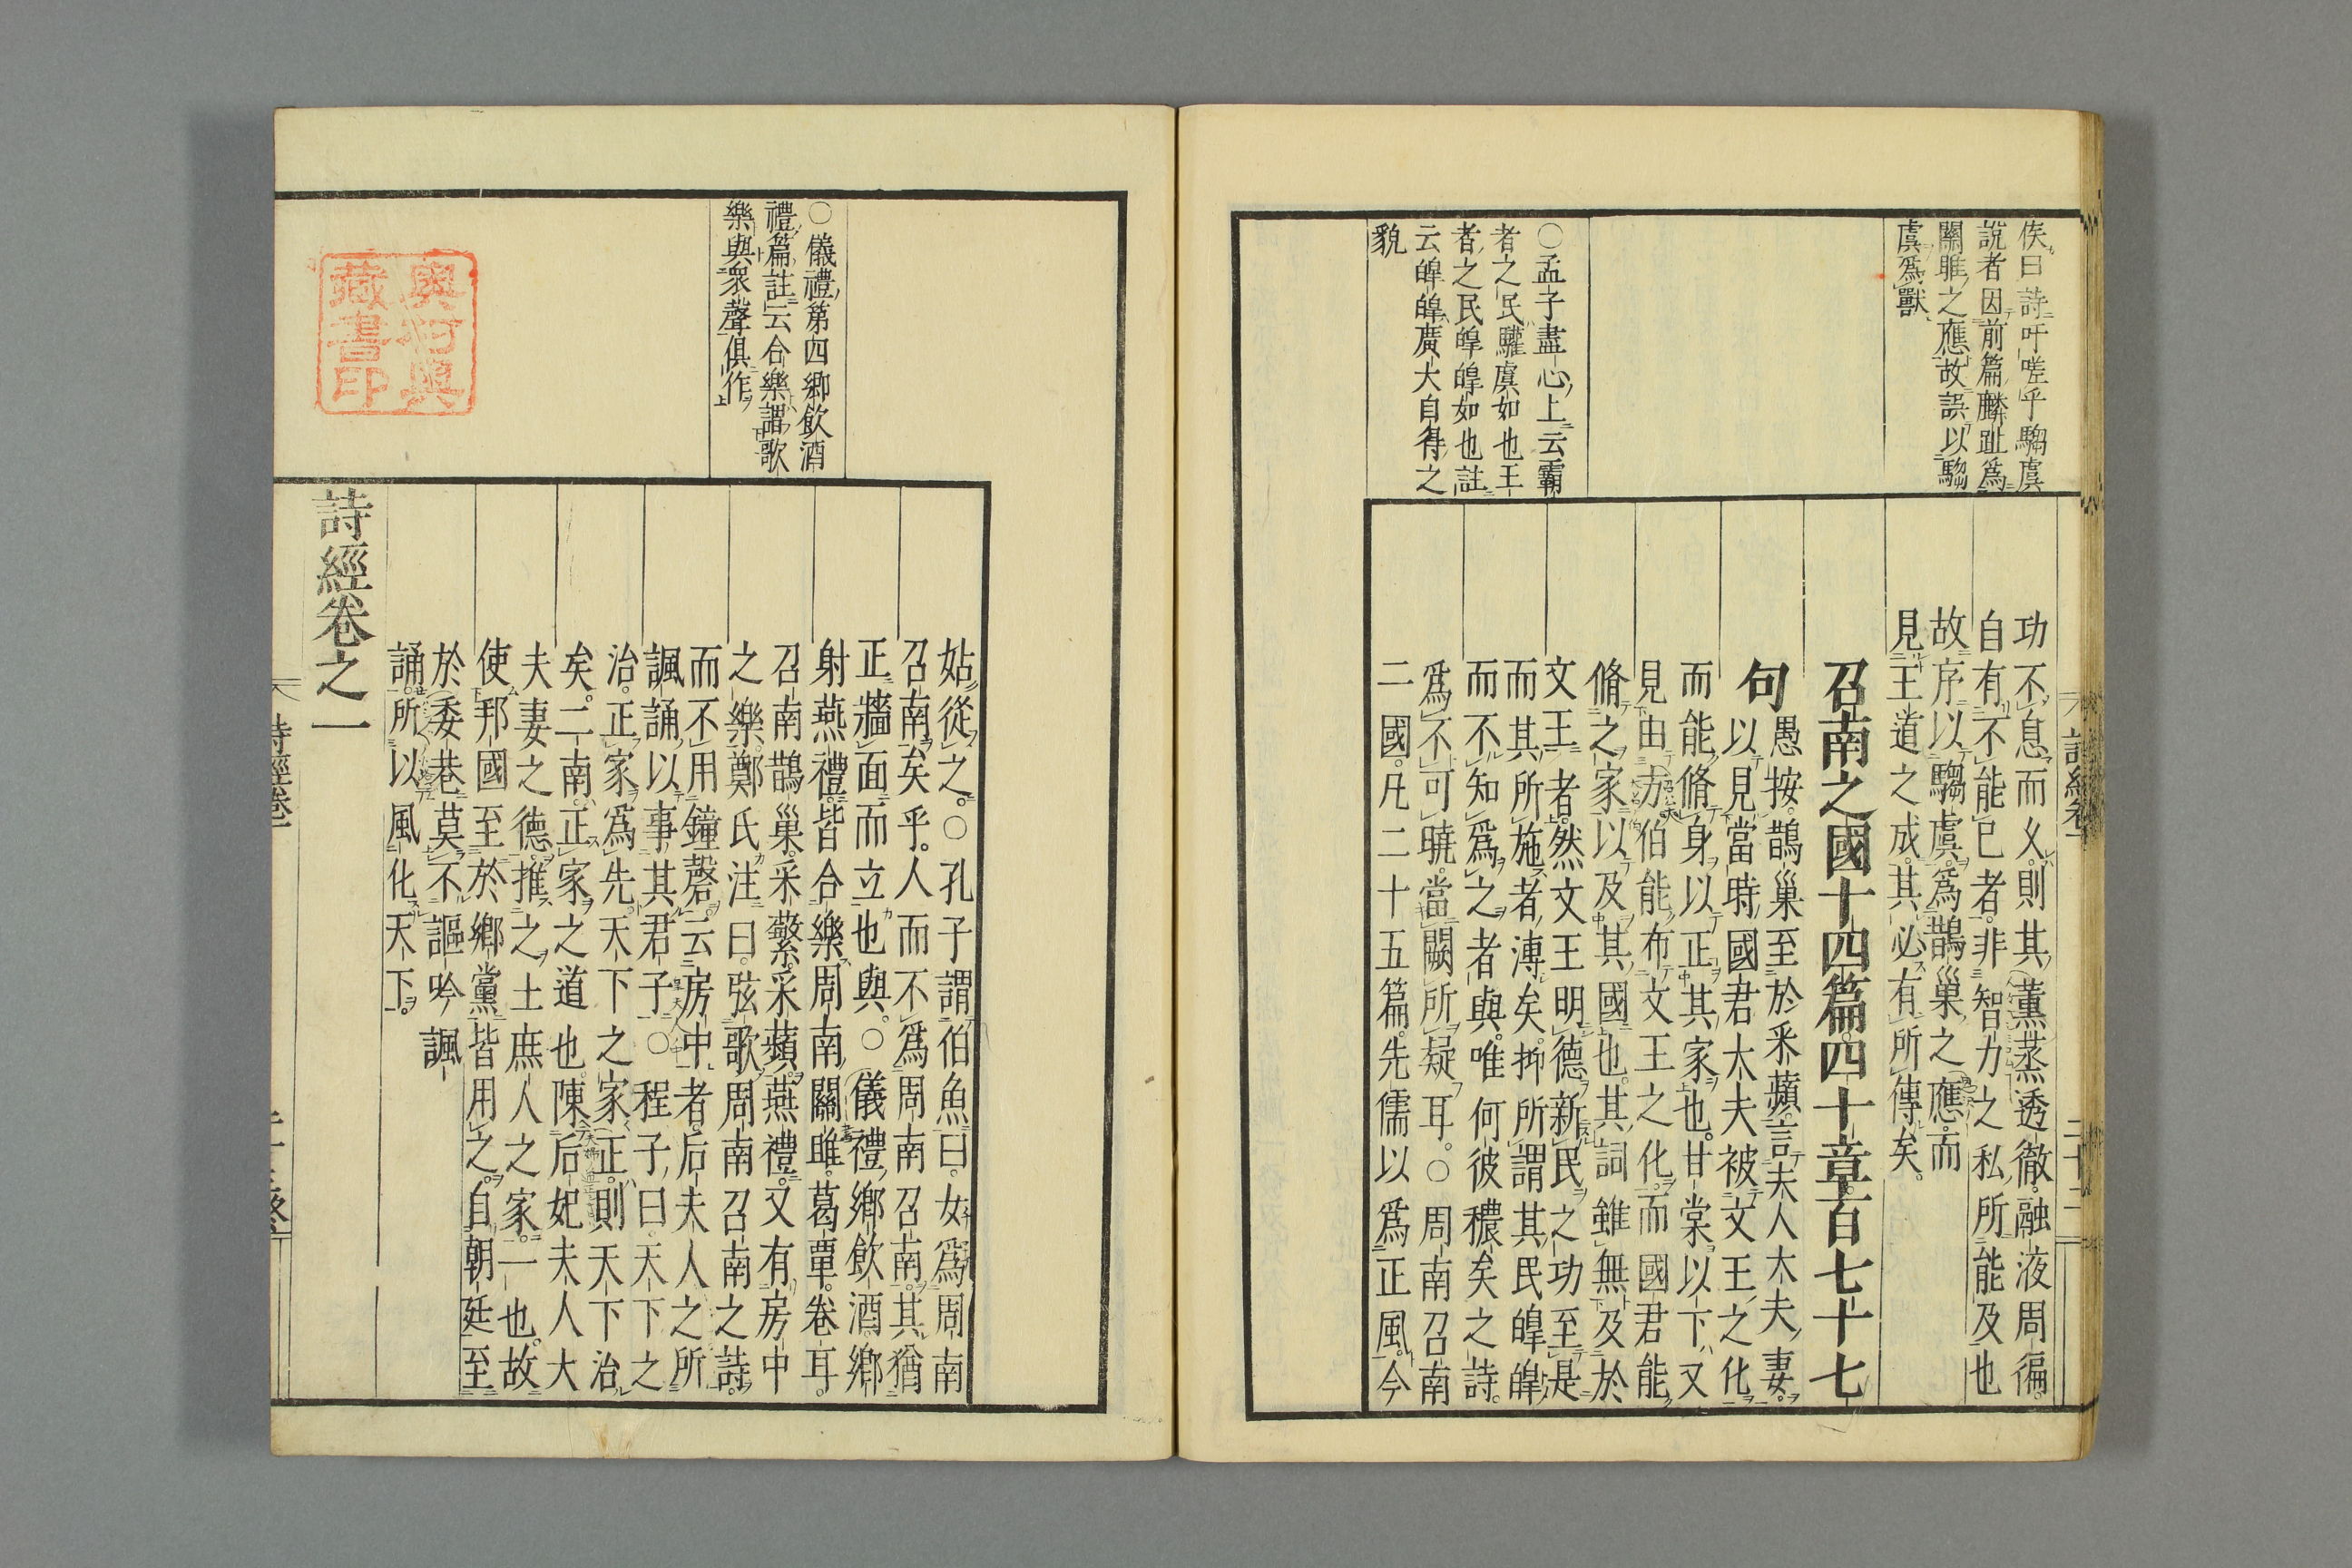 俟曰詩吁嗟乎騶虞
說者因前篇麟趾爲
關雎之應故誤以騶
虞爲獸
○孟子盡心上云霸
者之民驩虞如也王
者之民皥皥如也註
云皥皥廣大自得之
貌
功不息而久則其薰蒸透徹融液周徧
自有不能已者非智力之私所能及也
故序以騶虞爲鵲巢之應而
見王道之成其必有所傳矣
召南之國十四篇四十章百七十七
句
愚按鵲巢至於采蘋言夫人大夫妻
以見當時國君大夫被文王之化
而能脩身以正其家也甘棠以下又
見由方伯能布文王之化而國君能
脩之家以及其國也其詞雖無及於
文王者然文王明德新民之功至是
而其所施者溥矣抑所謂其民皥皥
而不知爲之者與唯何彼穠矣之詩
爲不可曉當闕所疑耳○周南召南
二國凡二十五篇先儒以爲正風今
○儀禮第四鄉飲酒
禮篇註云合樂謂歌
樂與衆聲俱作
姑從之○孔子謂伯魚曰女爲周南
召南矣乎人而不爲周南召南其猶
正牆面而立也與○儀禮鄉飲酒鄉
射燕禮皆合樂周南關雎葛覃卷耳
召南鵲巢采蘩采蘋燕禮又有房中
之樂鄭氏注曰弦歌周南召南之詩
而不用鐘磬云房中者后夫人之所
諷誦以事其君子○程子曰天下之
治正家爲先天下之家正則天下治
矣二南正家之道也陳后妃夫人大
夫妻之德推之士庶人之家一也故
使邦國至於鄉黨皆用之自朝廷至
於委巷莫不謳吟諷
誦所以風化天下
詩經卷之一
詩經卷一